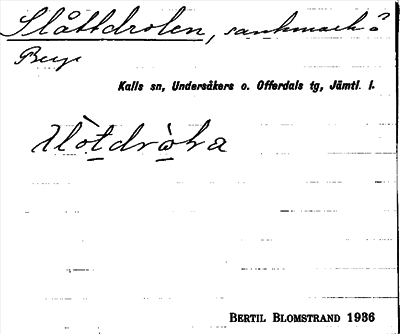 Slåttdrolen, sankmark?
Berge
Kalls sn, Undersåkers o. Offerdals tg, Jämtl. l.
BERTIL BLOMSTRAND 1936